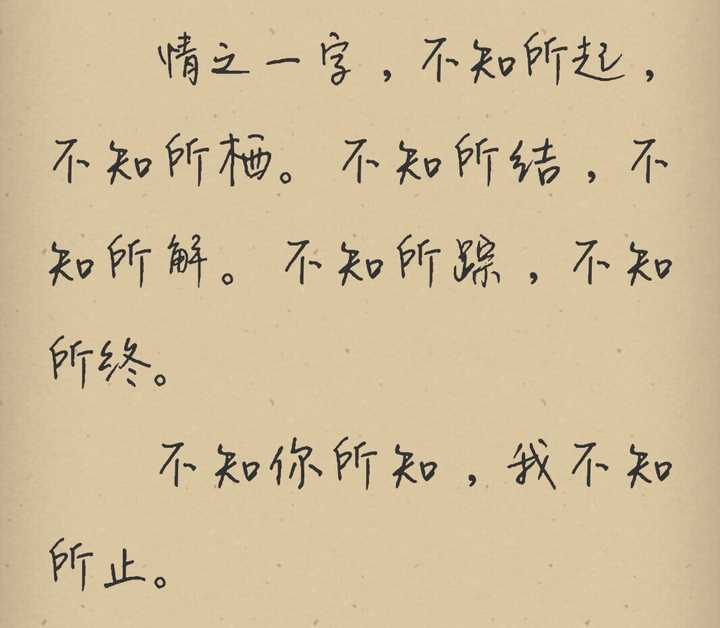 情之一字，不知所起，
不知所栖。不知所结，不
知所解。不知所踪，不知
所终。
不知你所知，我不知
所止。